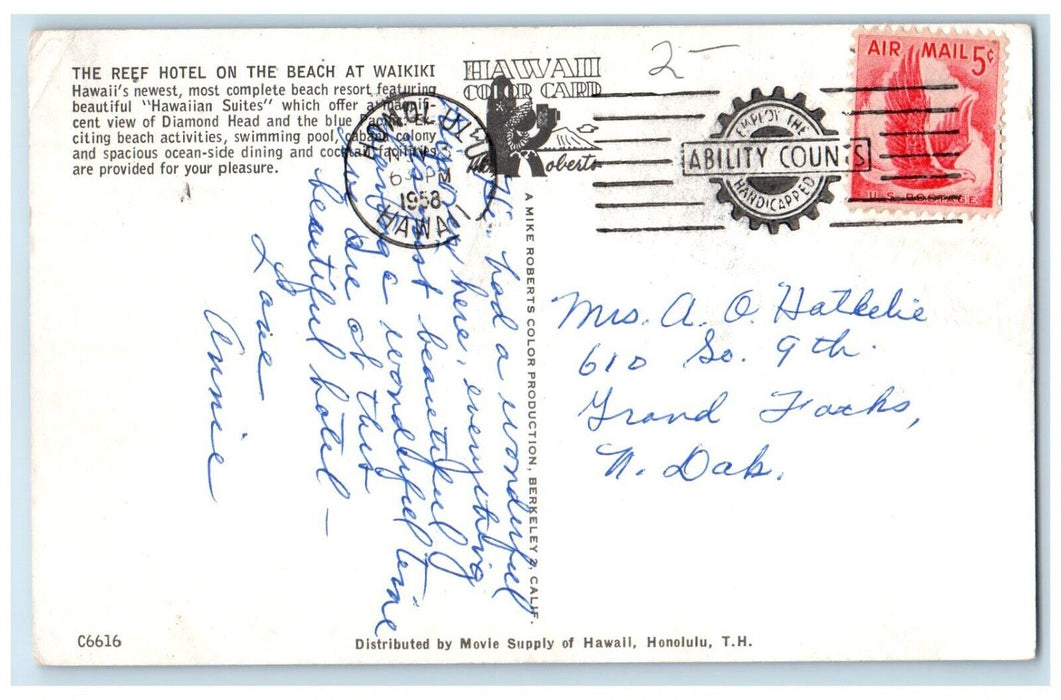 THE REEF HOTEL ON THE BEACH AT WAIKIKI
Hawaii's newest, most complete beach resort featuring
beautiful "Hawaiian Suites" which offer a magnifi-
cent view of Diamond Head and the blue Pacific. Ex-
citing beach activities, swimming pool, cabana colony
and spacious ocean-side dining and cocktail facilities
are provided for your pleasure.
HAWAII
COLOR CARD
Roberts
2-
HONOLULU
6 PM
1958
HAWAII
EMPLOY THE
ABILITY COUNTS
HANDICAPPED
AIR MAIL 5¢
U.S. POSTAGE
had a wonderful
here, everything
is just beautiful
Having a wonderful time
we are at this
beautiful hotel -
Love
Annie
A MIKE ROBERTS COLOR PRODUCTION, BERKELEY 2, CALIF.
Mrs. A. O. Hatlelie
610 So. 9th.
Grand Forks,
N. Dak.
C6616
Distributed by Movie Supply of Hawaii, Honolulu, T.H.